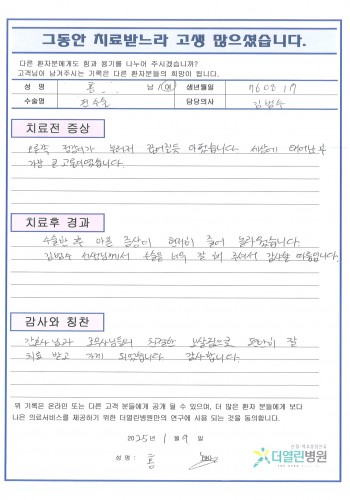 그동안 치료받느라 고생 많으셨습니다.
다른 환자분에게도 힘과 용기를 나누어 주시겠습니까?
고객님이 남겨주시는 기록은 다른 환자분들의 희망이 됩니다.
성 명 홍 남 / 여 생년월일 760217
수술명 담당의사 김범수
치료전 증상
오른쪽 부러져 아팠습니다 세상에 태어난 후
가장 큰 고통이였습니다.
치료후 경과
수술한 후 아픈 증상이 현저히 줄어 놀라웠습니다.
김범수 선생님께서 수술을 너무 잘 해 주셔서 감사할 따름입니다.
감사와 칭찬
간호사님과 친절한 보살핌으로 편하게 잘
치료 받고 가게 되었습니다 감사합니다.
위 기록은 온라인 또는 다른 고객 분들에게 공개 될 수 있으며, 더 많은 환자 분들에게 보다
나은 의료서비스를 제공하기 위한 더열린병원만의 연구에 사용 되는 것을 동의합니다.
2025년 1월 9일
성 명 : 홍
더열린병원